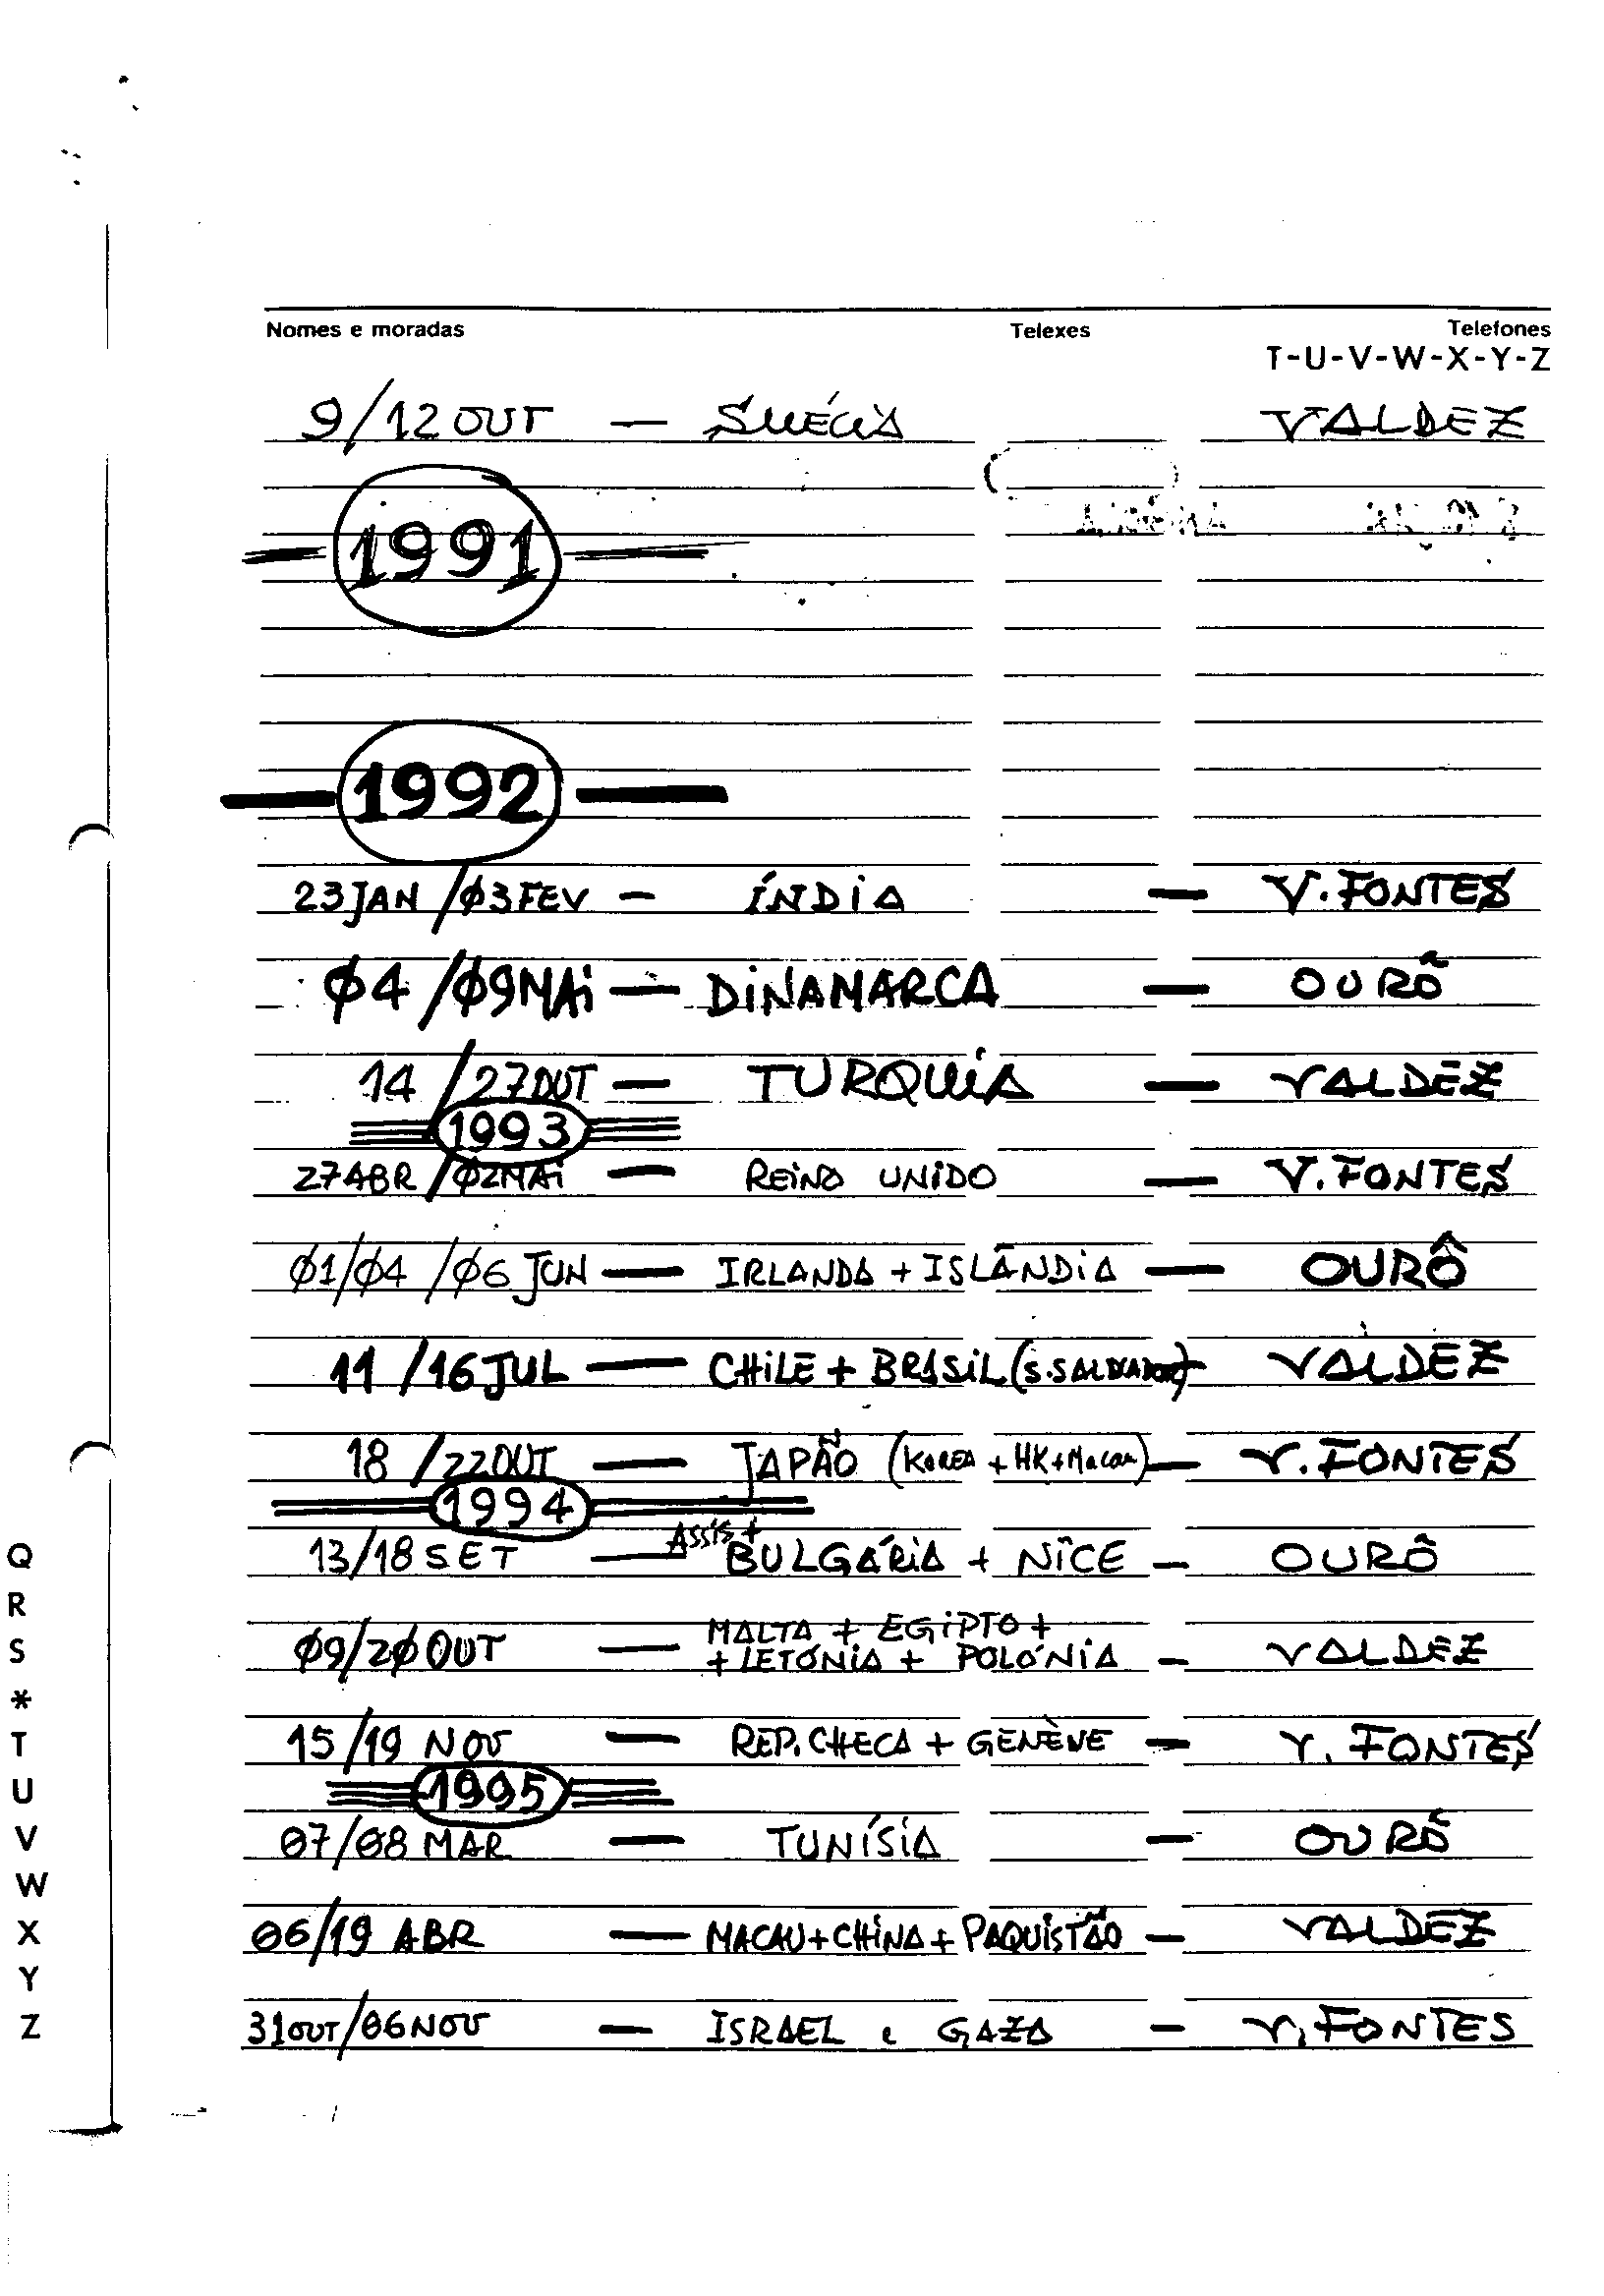 Nomes e moradas Telexes Telefones
T-U-V-W-X-Y-Z
9/12 OUT — SUÉCIA VALDEZ
— 1991 —
— 1992 —
23 JAN / 03 FEV — ÍNDIA — V. FONTES
04 / 09 MAI — DINAMARCA — OURÔ
14 / 27 OUT — TURQUIA — VALDEZ
1993
27 ABR / 02 MAI — REINO UNIDO — V. FONTES
01/04 /06 JUN — IRLANDA + ISLÂNDIA — OURÔ
11 / 16 JUL — CHILE + BRASIL (S. SALVADOR) — VALDEZ
18 / 22 OUT — JAPÃO (KOREA + HK + Macau) — V. FONTES
1994
13/18 SET — ASSIS + BULGÁRIA + NICE — OURÔ
09/20 OUT — MALTA + EGIPTO +
+ LETÓNIA + POLÓNIA — VALDEZ
15/19 NOV — REP. CHECA + GENÈVE — V. FONTES
1995
07/08 MAR — TUNÍSIA — OURÔ
06/19 ABR — MACAU + CHINA + PAQUISTÃO — VALDEZ
31 OUT/06 NOV — ISRAEL e GAZA — V. FONTES
Q
R
S
*
T
U
V
W
X
Y
Z